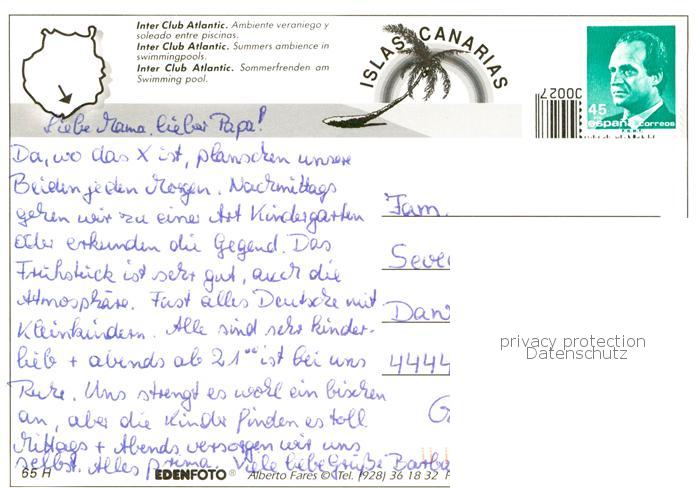 Inter Club Atlantic. Ambiente veraniego y
soleado entre piscinas.
Inter Club Atlantic. Summers ambience in
swimmingpools.
Inter Club Atlantic. Sommerfrenden am
Swimming pool.
ISLAS CANARIAS
00027
45
españa correos
Liebe Mama, lieber Papa!
Da, wo das X ist, planschen unsere
Beiden jeden Morgen. Nachmittags
gehen wir zu einer Art Kindergarten
oder erkunden die Gegend. Das
Frühstück ist sehr gut, auch die
Atmosphäre. Fast alles Deutsche mit
Kleinkindern. Alle sind sehr kinder-
lieb + abends ab 21°° ist bei uns
Ruhe. Uns strengt es wohl ein bischen
an, aber die Kinder finden es toll
Mittags + Abends versorgen wir uns
selbst. Alles prima. Viele liebe Grüße Barba
Fam.
4444
privacy protection
Datenschutz
65 H
EDENFOTO® Alberto Fares © Tel. (928) 36 18 32